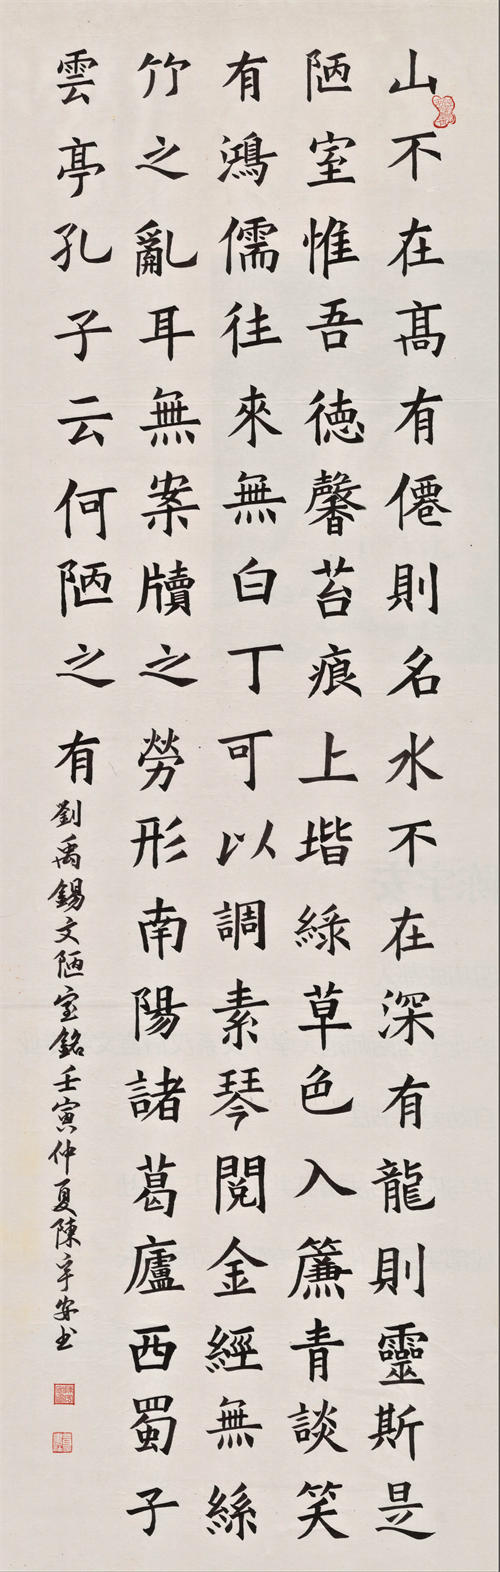 山不在髙有僊則名水不在深有龍則靈斯是
陋室惟吾徳馨苔痕上堦綠草色入簾青談笑
有鴻儒往來無白丁可以調素琴閱金經無絲
竹之亂耳無案牘之勞形南陽諸葛廬西蜀子
雲亭孔子云何陋之有
劉禹錫文陋室銘壬寅仲夏陳宇安书